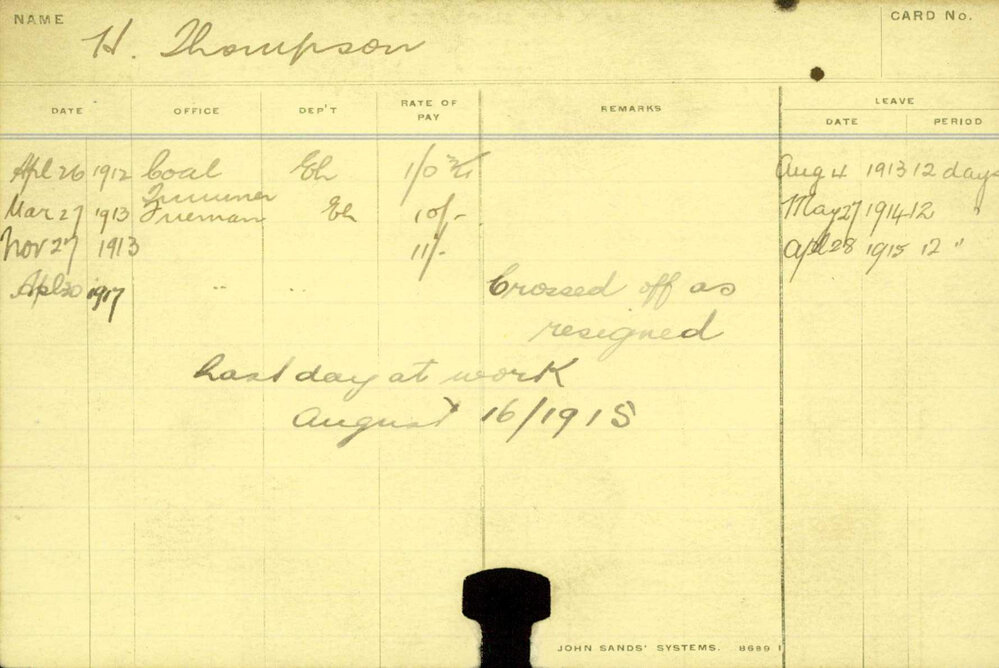 NAME H. Thompson CARD No.
DATE OFFICE DEP'T RATE OF PAY REMARKS LEAVE
DATE PERIOD
Apl 26 1912 Coal Eh 1/0 Aug 4 1913 12 days
Trimmer
Mar 27 1913 Fireman Eh 10/- May 27 1914 12 "
Nov 27 1913 11/- Apl 28 1915 12 "
Apl 30 1917 " " Crossed off as
resigned
Last day at work
August 16/1915
JOHN SANDS' SYSTEMS. 8689